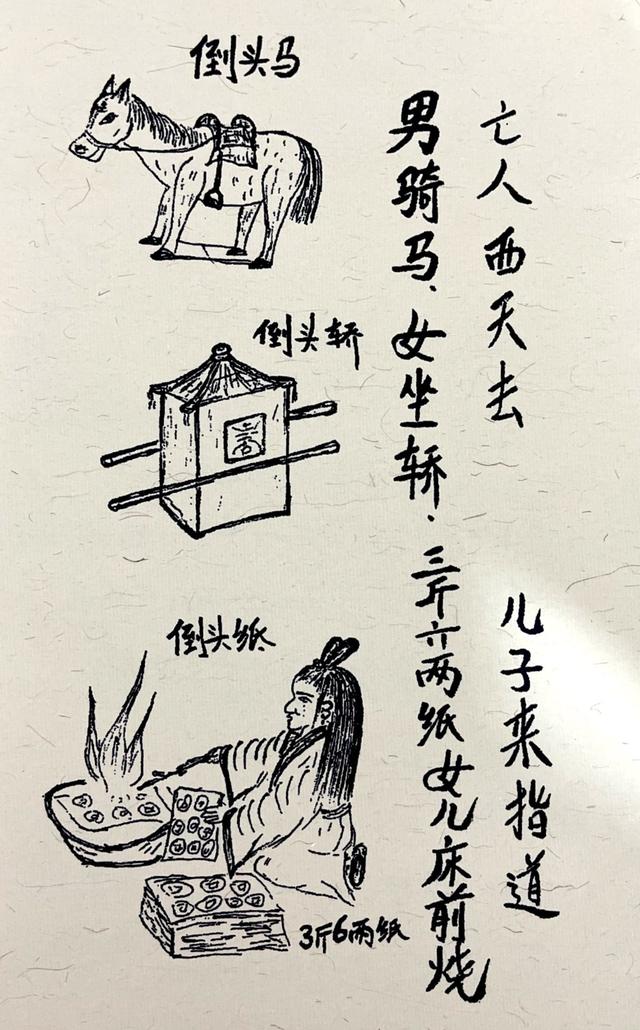 亡人西天去
儿子来指道
男骑马、女坐轿.
三斤六两纸女儿床前烧
倒头马
倒头轿
倒头纸
3斤6两纸